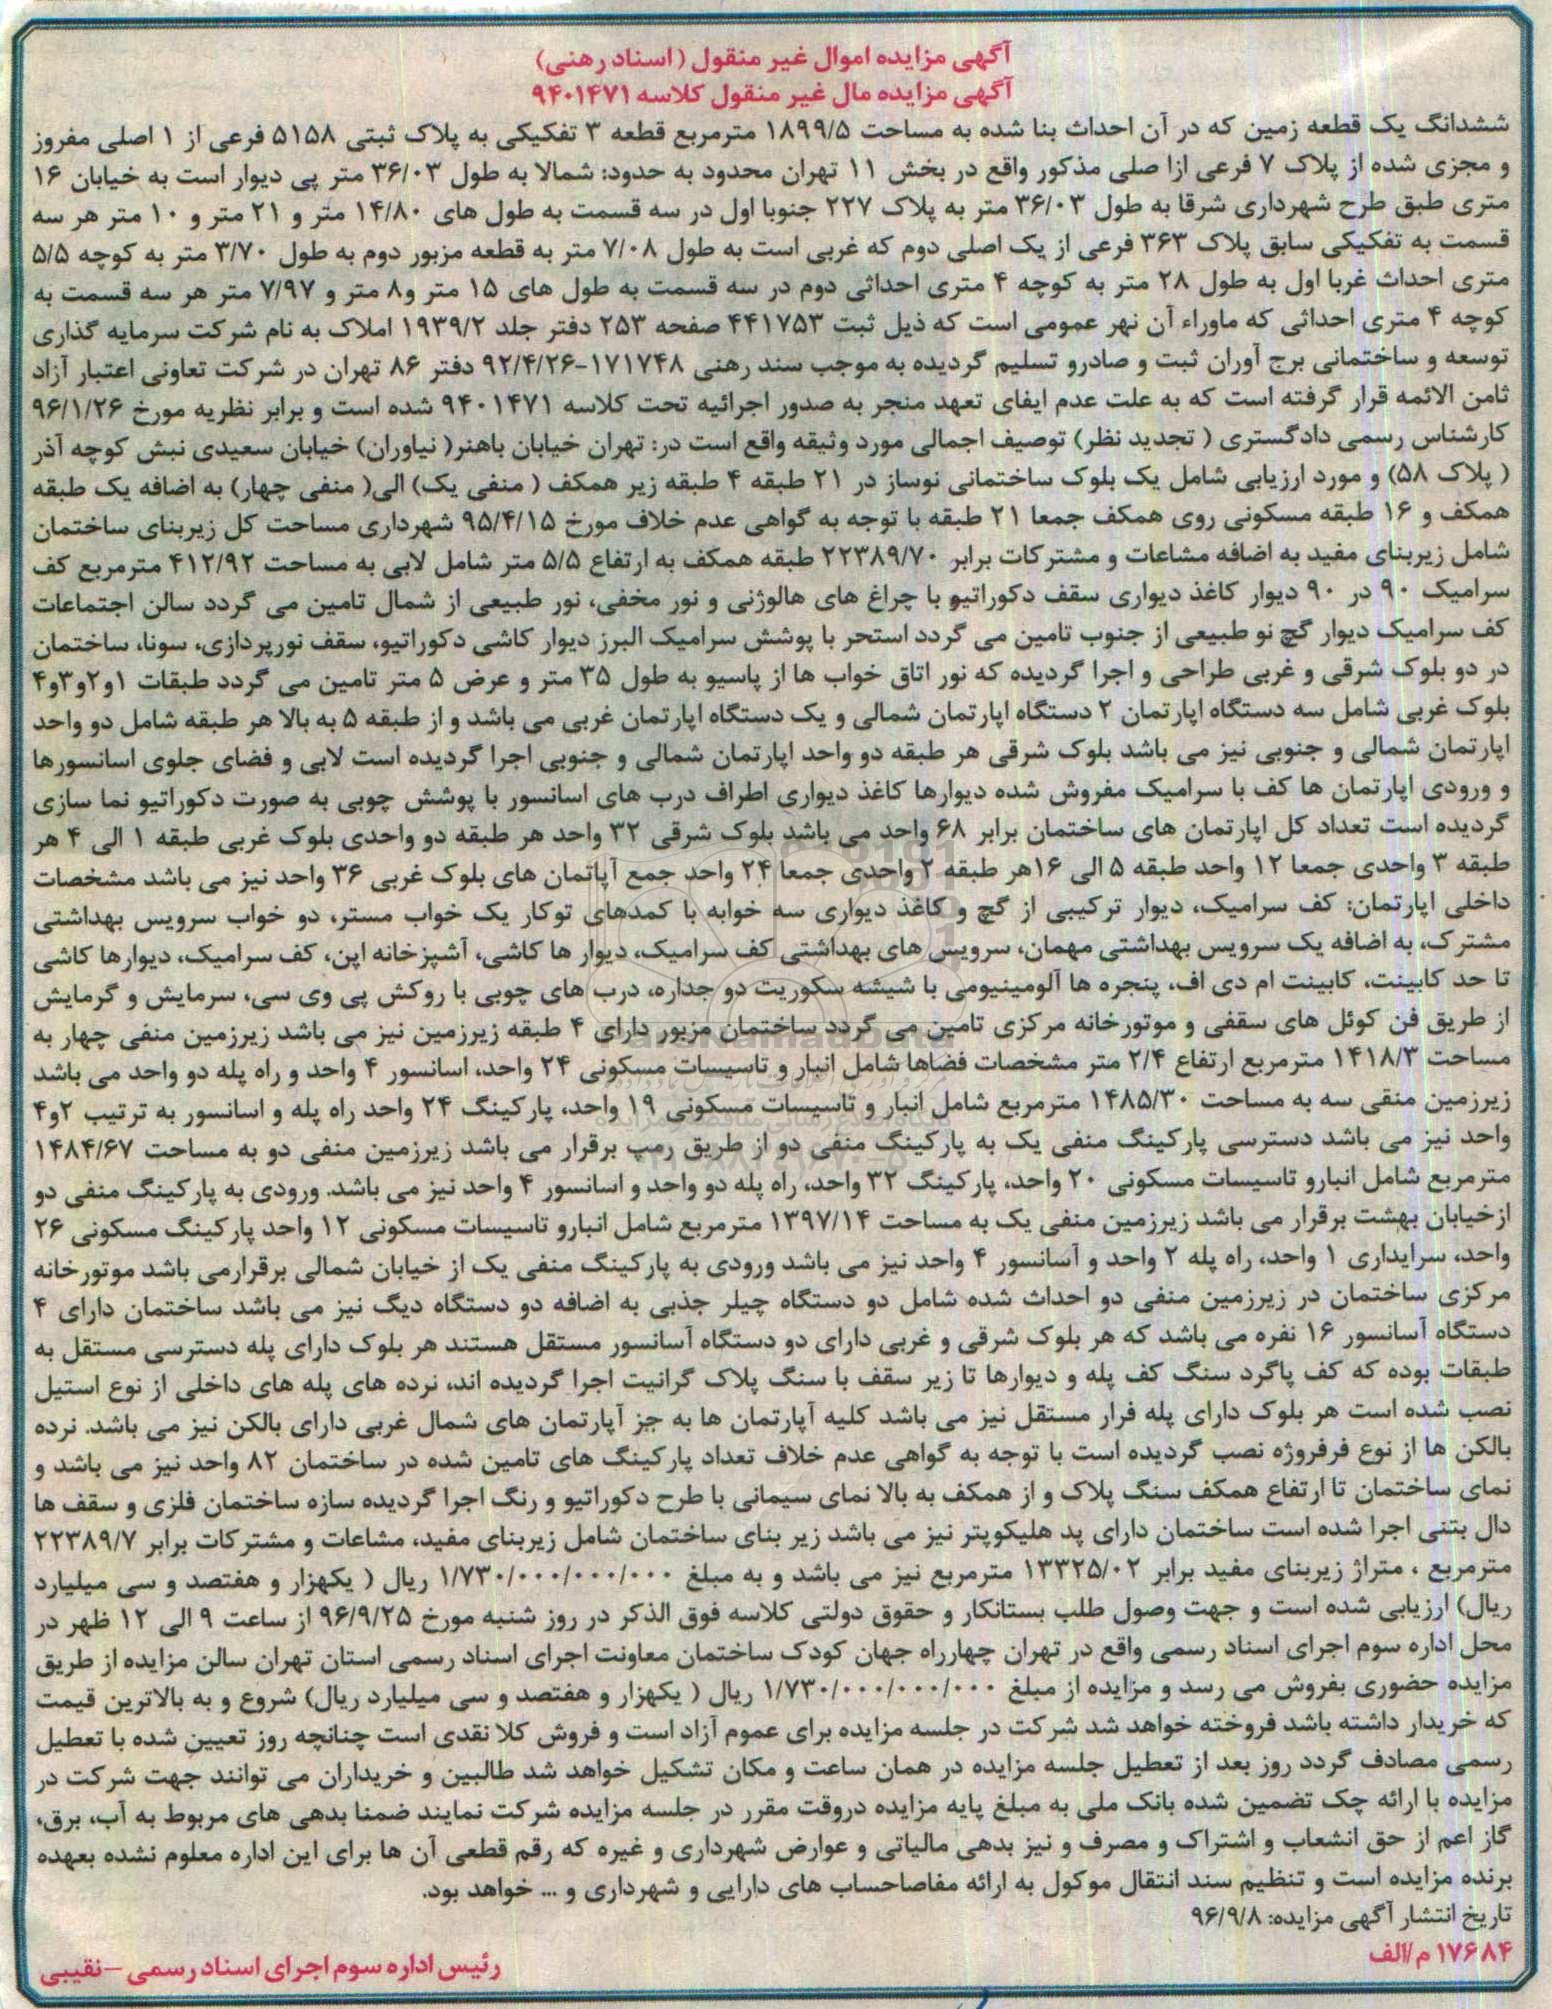 آگهی مزایده اموال غیر منقول (اسناد رهنی)
آگهی مزایده مال غیر منقول کلاسه ۹۴۰۱۴۷۱
ششدانگ یک قطعه زمین که در آن احداث بنا شده به مساحت ۱۸۹۹/۵ مترمربع قطعه ۳ تفکیکی به پلاک ثبتی ۵۱۵۸ فرعی از ۱ اصلی مفروز
و مجزی شده از پلاک ۷ فرعی ازا صلی مذکور واقع در بخش ۱۱ تهران محدود به حدود: شمالا به طول ۳۶/۰۳ متر پی دیوار است به خیابان ۱۶
متری طبق طرح شهرداری شرقا به طول ۳۶/۰۳ متر به پلاک ۲۲۷ جنوبا اول در سه قسمت به طول های ۱۴/۸۰ متر و ۲۱ متر و ۱۰ متر هر سه
قسمت به تفکیکی سابق پلاک ۳۶۳ فرعی از یک اصلی دوم که غربی است به طول ۷/۰۸ متر به قطعه مزبور دوم به طول ۳/۷۰ متر به کوچه ۵/۵
متری احداث غربا اول به طول ۲۸ متر به کوچه ۴ متری احداثی دوم در سه قسمت به طول های ۱۵ متر و۸ متر و ۷/۹۷ متر هر سه قسمت به
کوچه ۴ متری احداثی که ماوراء آن نهر عمومی است که ذیل ثبت ۴۴۱۷۵۳ صفحه ۲۵۳ دفتر جلد ۱۹۳۹/۲ املاک به نام شرکت سرمایه گذاری
توسعه و ساختمانی برج آوران ثبت و صادرو تسلیم گردیده به موجب سند رهنی ۱۷۱۷۴۸-۹۲/۴/۲۶ دفتر ۸۶ تهران در شرکت تعاونی اعتبار آزاد
ثامن الائمه قرار گرفته است که به علت عدم ایفای تعهد منجر به صدور اجرائیه تحت کلاسه ۹۴۰۱۴۷۱ شده است و برابر نظریه مورخ ۹۶/۱/۲۶
کارشناس رسمی دادگستری ( تجدید نظر) توصیف اجمالی مورد وثیقه واقع است در: تهران خیابان باهنر( نیاوران) خیابان سعیدی نبش کوچه آذر
( پلاک ۵۸) و مورد ارزیابی شامل یک بلوک ساختمانی نوساز در ۲۱ طبقه ۴ طبقه زیر همکف ( منفی یک) الی( منفی چهار) به اضافه یک طبقه
همکف و ۱۶ طبقه مسکونی روی همکف جمعا ۲۱ طبقه با توجه به گواهی عدم خلاف مورخ ۹۵/۴/۱۵ شهرداری مساحت کل زیربنای ساختمان
شامل زیربنای مفید به اضافه مشاعات و مشترکات برابر ۲۲۳۸۹/۷۰ طبقه همکف به ارتفاع ۵/۵ متر شامل لابی به مساحت ۴۱۲/۹۲ مترمربع کف
سرامیک ۹۰ در ۹۰ دیوار کاغذ دیواری سقف دکوراتیو با چراغ های هالوژنی و نور مخفی، نور طبیعی از شمال تامین می گردد سالن اجتماعات
کف سرامیک دیوار گچ نو طبیعی از جنوب تامین می گردد استحر با پوشش سرامیک البرز دیوار کاشی دکوراتیو، سقف نورپردازی، سونا، ساختمان
در دو بلوک شرقی و غربی طراحی و اجرا گردیده که نور اتاق خواب ها از پاسیو به طول ۳۵ متر و عرض ۵ متر تامین می گردد طبقات ۱و۲و۳و۴
بلوک غربی شامل سه دستگاه اپارتمان ۲ دستگاه اپارتمان شمالی و یک دستگاه اپارتمان غربی می باشد و از طبقه ۵ به بالا هر طبقه شامل دو واحد
اپارتمان شمالی و جنوبی نیز می باشد بلوک شرقی هر طبقه دو واحد اپارتمان شمالی و جنوبی اجرا گردیده است لابی و فضای جلوی اسانسورها
و ورودی اپارتمان ها کف با سرامیک مفروش شده دیوارها کاغذ دیواری اطراف درب های اسانسور با پوشش چوبی به صورت دکوراتیو نما سازی
گردیده است تعداد کل اپارتمان های ساختمان برابر ۶۸ واحد می باشد بلوک شرقی ۳۲ واحد هر طبقه دو واحدی بلوک غربی طبقه ۱ الی ۴ هر
طبقه ۳ واحدی جمعا ۱۲ واحد طبقه ۵ الی ۱۶هر طبقه ۲ واحدی جمعا ۲۴ واحد جمع آپاتمان های بلوک غربی ۳۶ واحد نیز می باشد مشخصات
داخلی اپارتمان: کف سرامیک، دیوار ترکیبی از گچ و کاغذ دیواری سه خوابه با کمدهای توکار یک خواب مستر، دو خواب سرویس بهداشتی
مشترک، به اضافه یک سرویس بهداشتی مهمان، سرویس های بهداشتی کف سرامیک، دیوار ها کاشی، آشپزخانه اپن، کف سرامیک، دیوارها کاشی
تا حد کابینت، کابینت ام دی اف، پنجره ها آلومینیومی با شیشه سکوریت دو جداره، درب های چوبی با روکش پی وی سی، سرمایش و گرمایش
از طریق فن کوئل های سقفی و موتورخانه مرکزی تامین می گردد ساختمان مزبور دارای ۴ طبقه زیرزمین نیز می باشد زیرزمین منفی چهار به
مساحت ۱۴۱۸/۳ مترمربع ارتفاع ۲/۴ متر مشخصات فضاها شامل انبار و تاسیسات مسکونی ۲۴ واحد، اسانسور ۴ واحد و راه پله دو واحد می باشد
زیرزمین منقی سه به مساحت ۱۴۸۵/۳۰ مترمربع شامل انبار و تاسیسات مسکونی ۱۹ واحد، پارکینگ ۲۴ واحد راه پله و اسانسور به ترتیب ۲و۴
واحد نیز می باشد دسترسی پارکینگ منفی یک به پارکینگ منفی دو از طریق رمپ برقرار می باشد زیرزمین منفی دو به مساحت ۱۴۸۴/۶۷
مترمربع شامل انبارو تاسیسات مسکونی ۲۰ واحد، پارکینگ ۳۲ واحد، راه پله دو واحد و اسانسور ۴ واحد نیز می باشد. ورودی به پارکینگ منفی دو
ازخیابان بهشت برقرار می باشد زیرزمین منفی یک به مساحت ۱۳۹۷/۱۴ مترمربع شامل انبارو تاسیسات مسکونی ۱۲ واحد پارکینگ مسکونی ۲۶
واحد، سرایداری ۱ واحد، راه پله ۲ واحد و آسانسور ۴ واحد نیز می باشد ورودی به پارکینگ منفی یک از خیابان شمالی برقرارمی باشد موتورخانه
مرکزی ساختمان در زیرزمین منفی دو احداث شده شامل دو دستگاه چیلر جذبی به اضافه دو دستگاه دیگ نیز می باشد ساختمان دارای ۴
دستگاه آسانسور ۱۶ نفره می باشد که هر بلوک شرقی و غربی دارای دو دستگاه آسانسور مستقل هستند هر بلوک دارای پله دسترسی مستقل به
طبقات بوده که کف پاگرد سنگ کف پله و دیوارها تا زیر سقف با سنگ پلاک گرانیت اجرا گردیده اند، نرده های پله های داخلی از نوع استیل
نصب شده است هر بلوک دارای پله فرار مستقل نیز می باشد کلیه آپارتمان ها به جز آپارتمان های شمال غربی دارای بالکن نیز می باشد. نرده
بالکن ها از نوع فرفروژه نصب گردیده است با توجه به گواهی عدم خلاف تعداد پارکینگ های تامین شده در ساختمان ۸۲ واحد نیز می باشد و
نمای ساختمان تا ارتفاع همکف سنگ پلاک و از همکف به بالا نمای سیمانی با طرح دکوراتیو و رنگ اجرا گردیده سازه ساختمان فلزی و سقف ها
دال بتنی اجرا شده است ساختمان دارای پد هلیکوپتر نیز می باشد زیر بنای ساختمان شامل زیربنای مفید، مشاعات و مشترکات برابر ۲۲۳۸۹/۷
مترمربع ، متراژ زیربنای مفید برابر ۱۳۳۲۵/۰۲ مترمربع نیز می باشد و به مبلغ ۱/۷۳۰/۰۰۰/۰۰۰/۰۰۰ ریال ( یکهزار و هفتصد و سی میلیارد
ریال) ارزیابی شده است و جهت وصول طلب بستانکار و حقوق دولتی کلاسه فوق الذکر در روز شنبه مورخ ۹۶/۹/۲۵ از ساعت ۹ الی ۱۲ ظهر در
محل اداره سوم اجرای اسناد رسمی واقع در تهران چهارراه جهان کودک ساختمان معاونت اجرای اسناد رسمی استان تهران سالن مزایده از طریق
مزایده حضوری بفروش می رسد و مزایده از مبلغ ۱/۷۳۰/۰۰۰/۰۰۰/۰۰۰ ریال ( یکهزار و هفتصد و سی میلیارد ریال) شروع و به بالاترین قیمت
که خریدار داشته باشد فروخته خواهد شد شرکت در جلسه مزایده برای عموم آزاد است و فروش کلا نقدی است چنانچه روز تعیین شده با تعطیل
رسمی مصادف گردد روز بعد از تعطیل جلسه مزایده در همان ساعت و مکان تشکیل خواهد شد طالبین و خریداران می توانند جهت شرکت در
مزایده با ارائه چک تضمین شده بانک ملی به مبلغ پایه مزایده دروقت مقرر در جلسه مزایده شرکت نمایند ضمنا بدهی های مربوط به آب، برق،
گاز اعم از حق انشعاب و اشتراک و مصرف و نیز بدهی مالیاتی و عوارض شهرداری و غیره که رقم قطعی آن ها برای این اداره معلوم نشده بعهده
برنده مزایده است و تنظیم سند انتقال موکول به ارائه مفاصاحساب های دارایی و شهرداری و ... خواهد بود.
تاریخ انتشار آگهی مزایده: ۹۶/۹/۸
۱۷۶۸۴ م/الف
رئیس اداره سوم اجرای اسناد رسمی –نقیبی